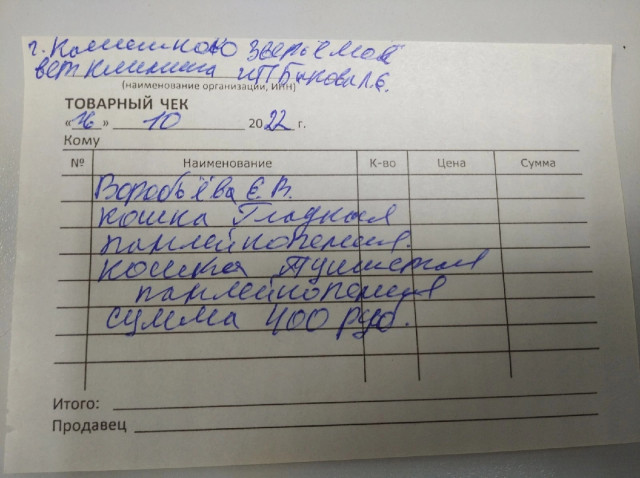 г. Камешково Зверьё моё
вет клиника ИП Быкова Л.Е.
(наименование организации, ИНН)
ТОВАРНЫЙ ЧЕК
« » 10 2022 г.
Кому
№ Наименование К-во Цена Сумма
Воробьёва Е.В.
кошка Гладкая
панлейкопения.
кошка
панлейкопения
сумма 400 руб.
Итого:
Продавец